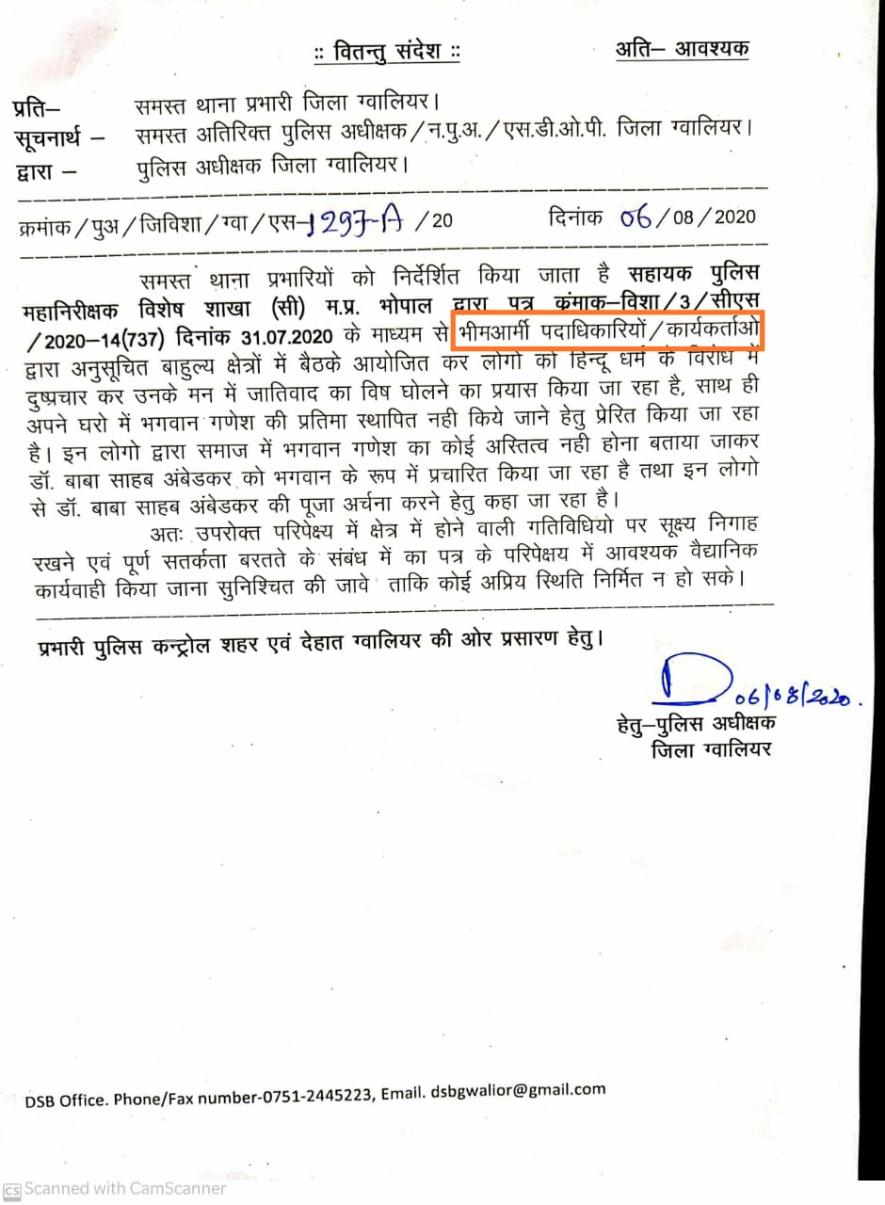 :: वितन्तु संदेश :: अति– आवश्यक
प्रति– समस्त थाना प्रभारी जिला ग्वालियर।
सूचनार्थ – समस्त अतिरिक्त पुलिस अधीक्षक/न.पु.अ./एस.डी.ओ.पी. जिला ग्वालियर।
द्वारा – पुलिस अधीक्षक जिला ग्वालियर।
क्रमांक/पुअ/जिविशा/ग्वा/एस–1297-A /20 दिनांक 06/08/2020
समस्त थाना प्रभारियों को निर्देशित किया जाता है सहायक पुलिस
महानिरीक्षक विशेष शाखा (सी) म.प्र. भोपाल द्वारा पत्र क्रंमाक–विशा/3/सीएस
/2020–14(737) दिनांक 31.07.2020 के माध्यम से भीमआर्मी पदाधिकारियों/कार्यकर्ताओ
द्वारा अनुसूचित बाहुल्य क्षेत्रों में बैठके आयोजित कर लोगो को हिन्दू धर्म के विरोध में
दुष्प्रचार कर उनके मन में जातिवाद का विष घोलने का प्रयास किया जा रहा है, साथ ही
अपने घरो में भगवान गणेश की प्रतिमा स्थापित नही किये जाने हेतु प्रेरित किया जा रहा
है। इन लोगो द्वारा समाज में भगवान गणेश का कोई अस्तित्व नही होना बताया जाकर
डॉ. बाबा साहब अंबेडकर को भगवान के रूप में प्रचारित किया जा रहा है तथा इन लोगो
से डॉ. बाबा साहब अंबेडकर की पूजा अर्चना करने हेतु कहा जा रहा है।
अतः उपरोक्त परिपेक्ष्य में क्षेत्र में होने वाली गतिविधियो पर सूक्ष्य निगाह
रखने एवं पूर्ण सतर्कता बरतते के संबंध में का पत्र के परिपेक्षय में आवश्यक वैद्यानिक
कार्यवाही किया जाना सुनिश्चित की जावे ताकि कोई अप्रिय स्थिति निर्मित न हो सके।
प्रभारी पुलिस कन्ट्रोल शहर एवं देहात ग्वालियर की ओर प्रसारण हेतु।
06/08/2020.
हेतु–पुलिस अधीक्षक
जिला ग्वालियर
DSB Office. Phone/Fax number-0751-2445223, Email. dsbgwalior@gmail.com
CS Scanned with CamScanner